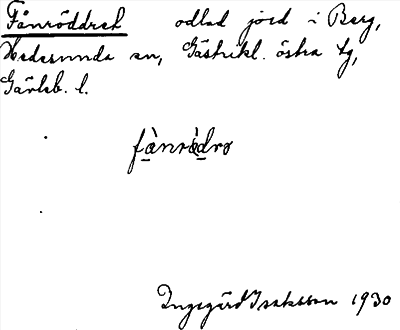 Fånröddret odlad jord i Berg,
Hedesunda sn, Gästrikl. östra tg,
Gävleb. l.
Ingegärd Isaksson 1930